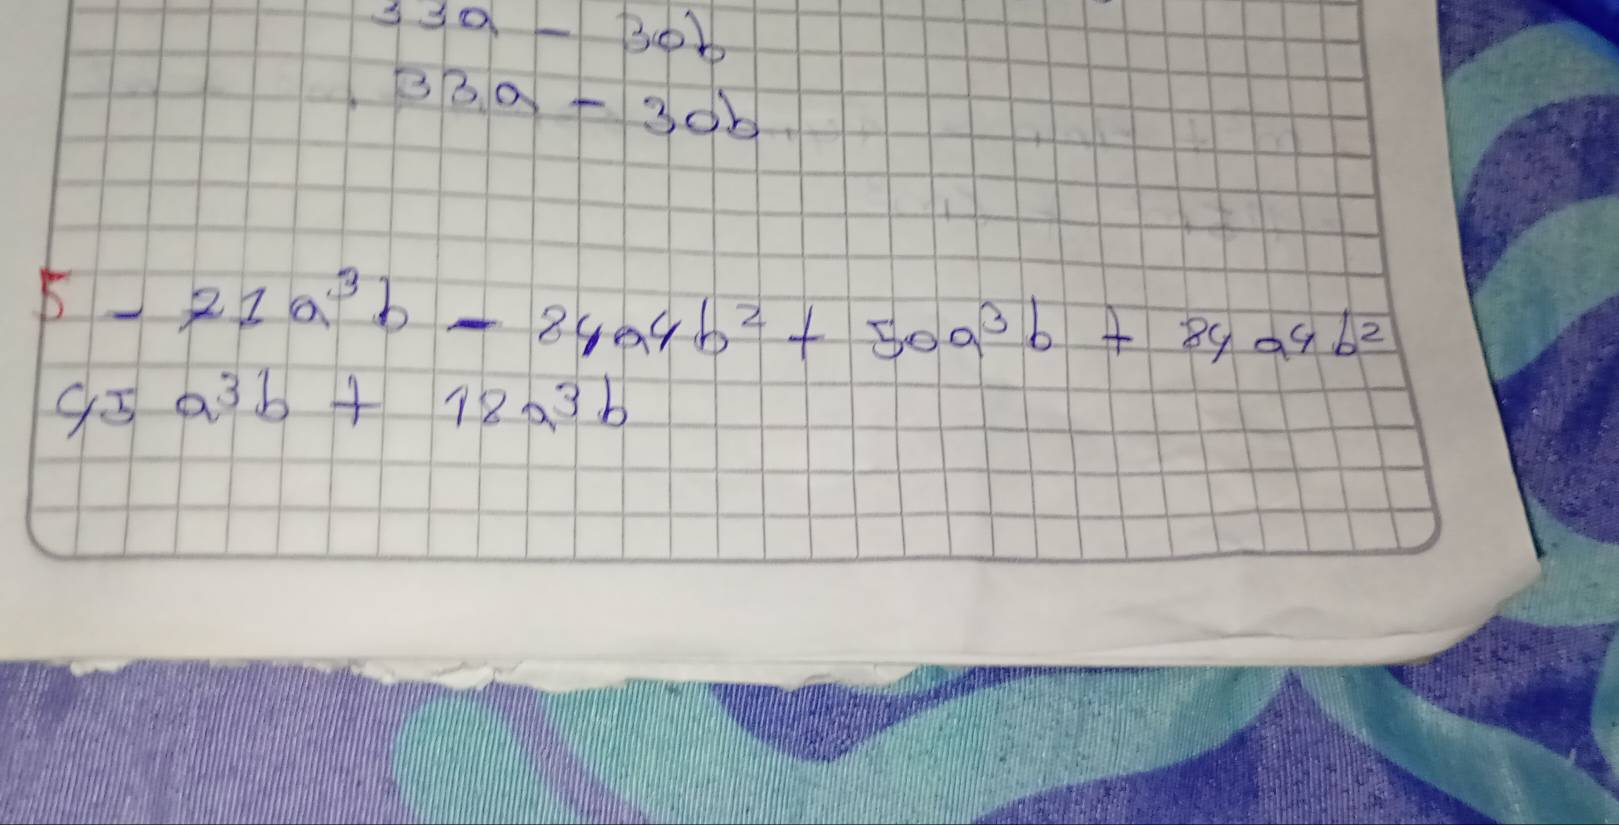 33a - 30b
33a - 30b
5 - 21a³b - 84a4b² + 50a³b + 84a4b²
45a³b + 18a³b